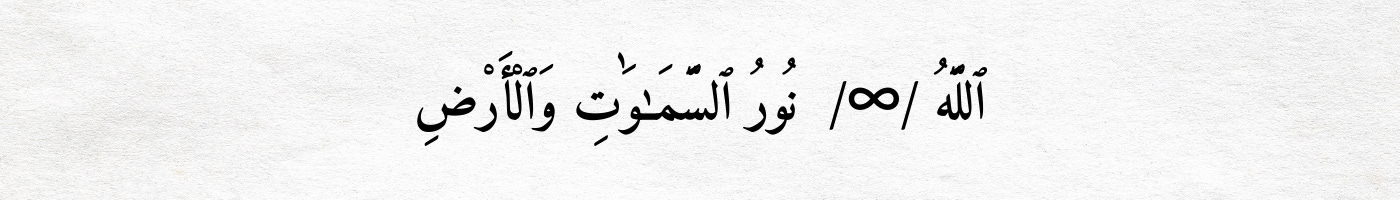 ٱللَّهُ /∞/ نُورُ ٱلسَّمَـٰوَٰتِ وَٱلْأَرْضِ